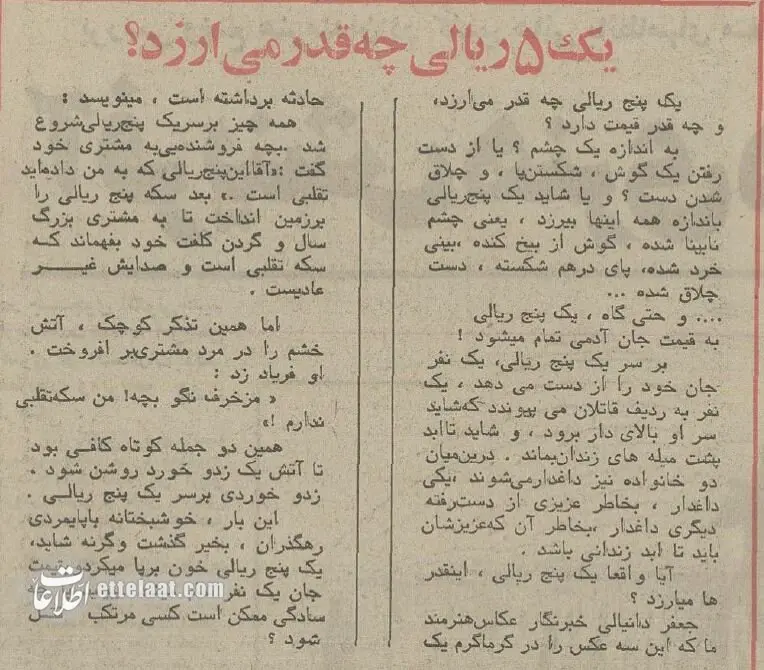 یک ۵ ریالی چه قدر می ارزد؟
یک پنج ریالی چه قدر می‌ارزد،
و چه قدر قیمت دارد ؟
به اندازه یک چشم ؟ یا از دست
رفتن یک گوش ، شکستن‌پا ، و چلاق
شدن دست ؟ و یا شاید یک پنج‌ریالی
باندازه همه اینها بیرزد ، یعنی چشم
نابینا شده ، گوش از بیخ کنده ،بینی
خرد شده، پای درهم شکسته ، دست
چلاق شده ...
.... و حتی گاه ، یک پنج ریالی
به قیمت جان آدمی تمام میشود !
بر سر یک پنج ریالی، یک نفر
جان خود را از دست می دهد ، یک
نفر به ردیف قاتلان می پیوندد که‌شاید
سر او بالای دار برود ، و شاید تاابد
پشت میله های زندان‌بماند . درین‌میان
دو خانواده نیز داغدارمی‌شوند ،یکی
داغدار ، بخاطر عزیزی از دست‌رفته
دیگری داغدار ،بخاطر آن که‌عزیزشان
باید تا ابد زندانی باشد .
آیا واقعا یک پنج ریالی ، اینقدر
ها میارزد ؟
جعفر دانیالی خبرنگار عکاس‌هنرمند
ما که این سه عکس را در گرماگرم یک
حادثه برداشته است ، مینویسد :
همه چیز برسریک پنج‌ریالی‌شروع
شد .بچه فروشنده‌یی‌به مشتری خود
گفت :«آقااین‌پنج‌ریالی که به من داده‌اید
تقلبی است .» بعد سکه پنج ریالی را
برزمین انداخت تا به مشتری بزرگ
سال و گردن کلفت خود بفهماند که
سکه تقلبی است و صدایش غیر
عادیست .
اما همین تذکر کوچک ، آتش
خشم را در مرد مشتری‌بر افروخت .
او فریاد زد :
« مزخرف نگو بچه! من سکه‌تقلبی
ندارم !»
همین دو جمله کوتاه کافی بود
تا آتش یک زدو خورد روشن شود .
زدو خوردی برسر یک پنج ریالی .
این بار ، خوشبختانه باپایمردی
رهگذران ، بخیر گذشت وگرنه شاید،
یک پنج ریالی خون برپا میکردو قیمت
جان یک نفر
سادگی ممکن است کسی مرتکب
شود ؟
اطلاعات ettelaat.com